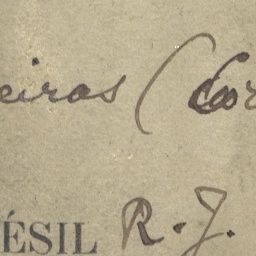 eiras (Cor
ÉSIL R. J.